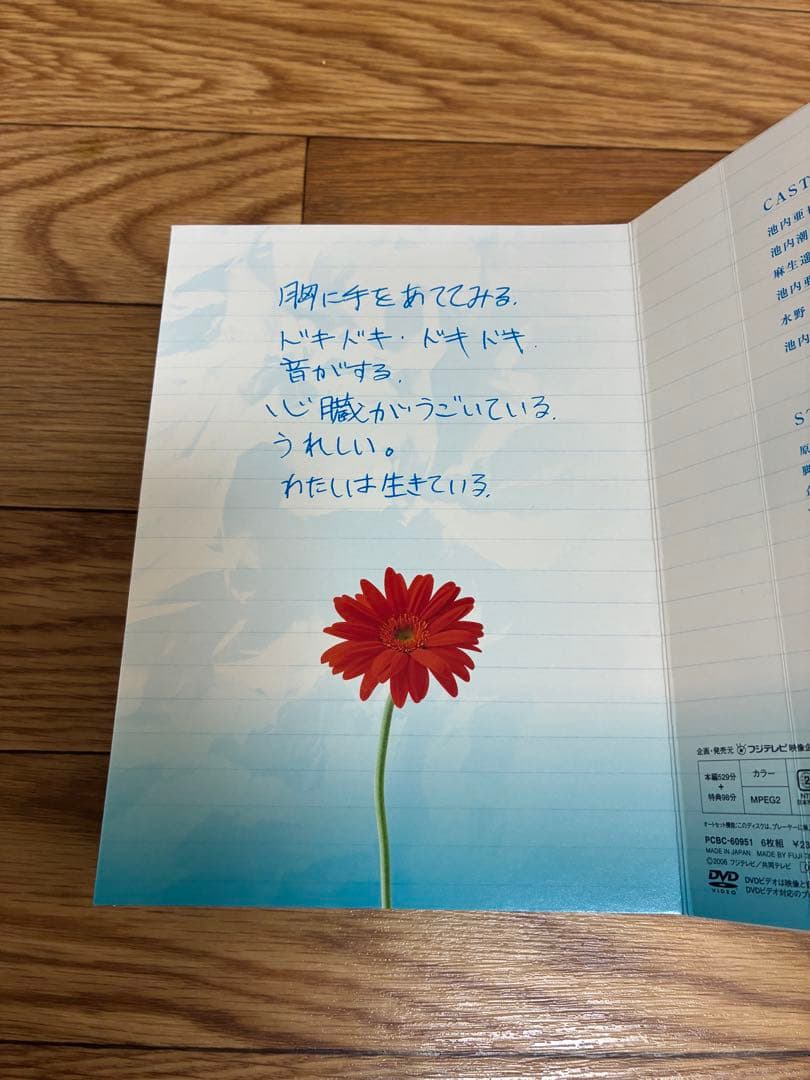 胸に手をあててみる.
ドキドキ・ドキドキ.
音がする.
心臓がうごいている.
うれしい。
わたしは生きている.
CAST
池内亜
池内潮
麻生遥
池内亜
水野
池内
企画・発売元 フジテレビ映像企
本編529分
+
特典98分
カラー
MPEG2
PCBC-60951 6枚組 ¥23
MADE IN JAPAN MADE BY FUJI T
©2006 フジテレビ/共同テレビ
DVD
VIDEO
DVDビデオは映像と
DVDビデオ対応のプ